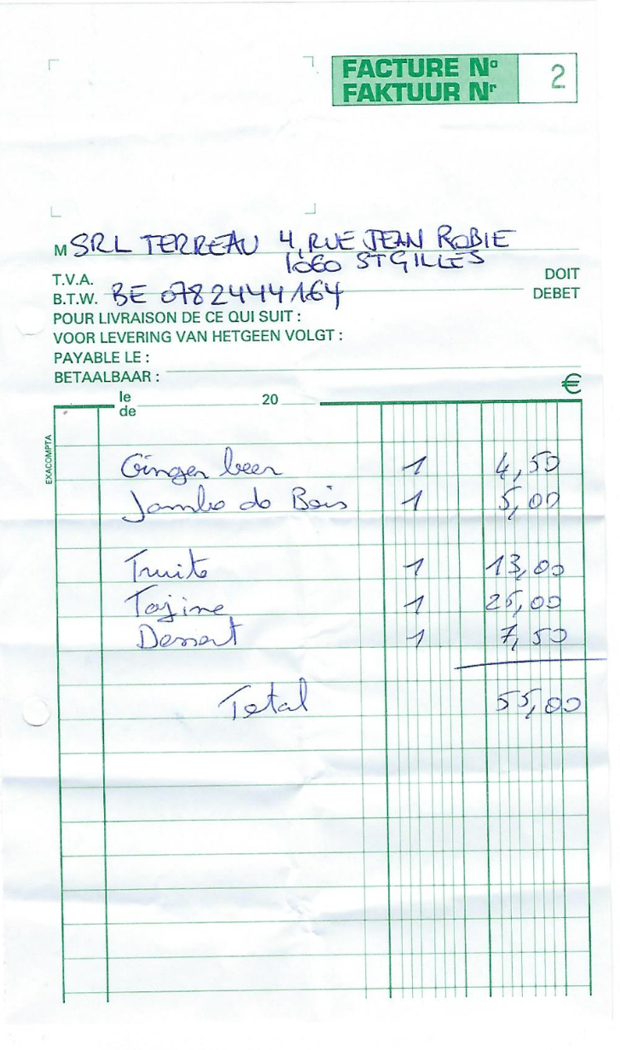 FACTURE Nº 2
FAKTUUR Nr
M SRL TERREAU 4, RUE JEAN ROBIE
1060 ST GILLES
T.V.A. DOIT
B.T.W. BE 0782444164 DEBET
POUR LIVRAISON DE CE QUI SUIT :
VOOR LEVERING VAN HETGEEN VOLGT :
PAYABLE LE :
BETAALBAAR : €
le 20
de
EXACOMPTA
Ginger beer 1 4,50
Jambe de Bois 1 5,00
Truite 1 13,00
Tajine 1 25,00
Dessert 1 7,50
Total 55,00